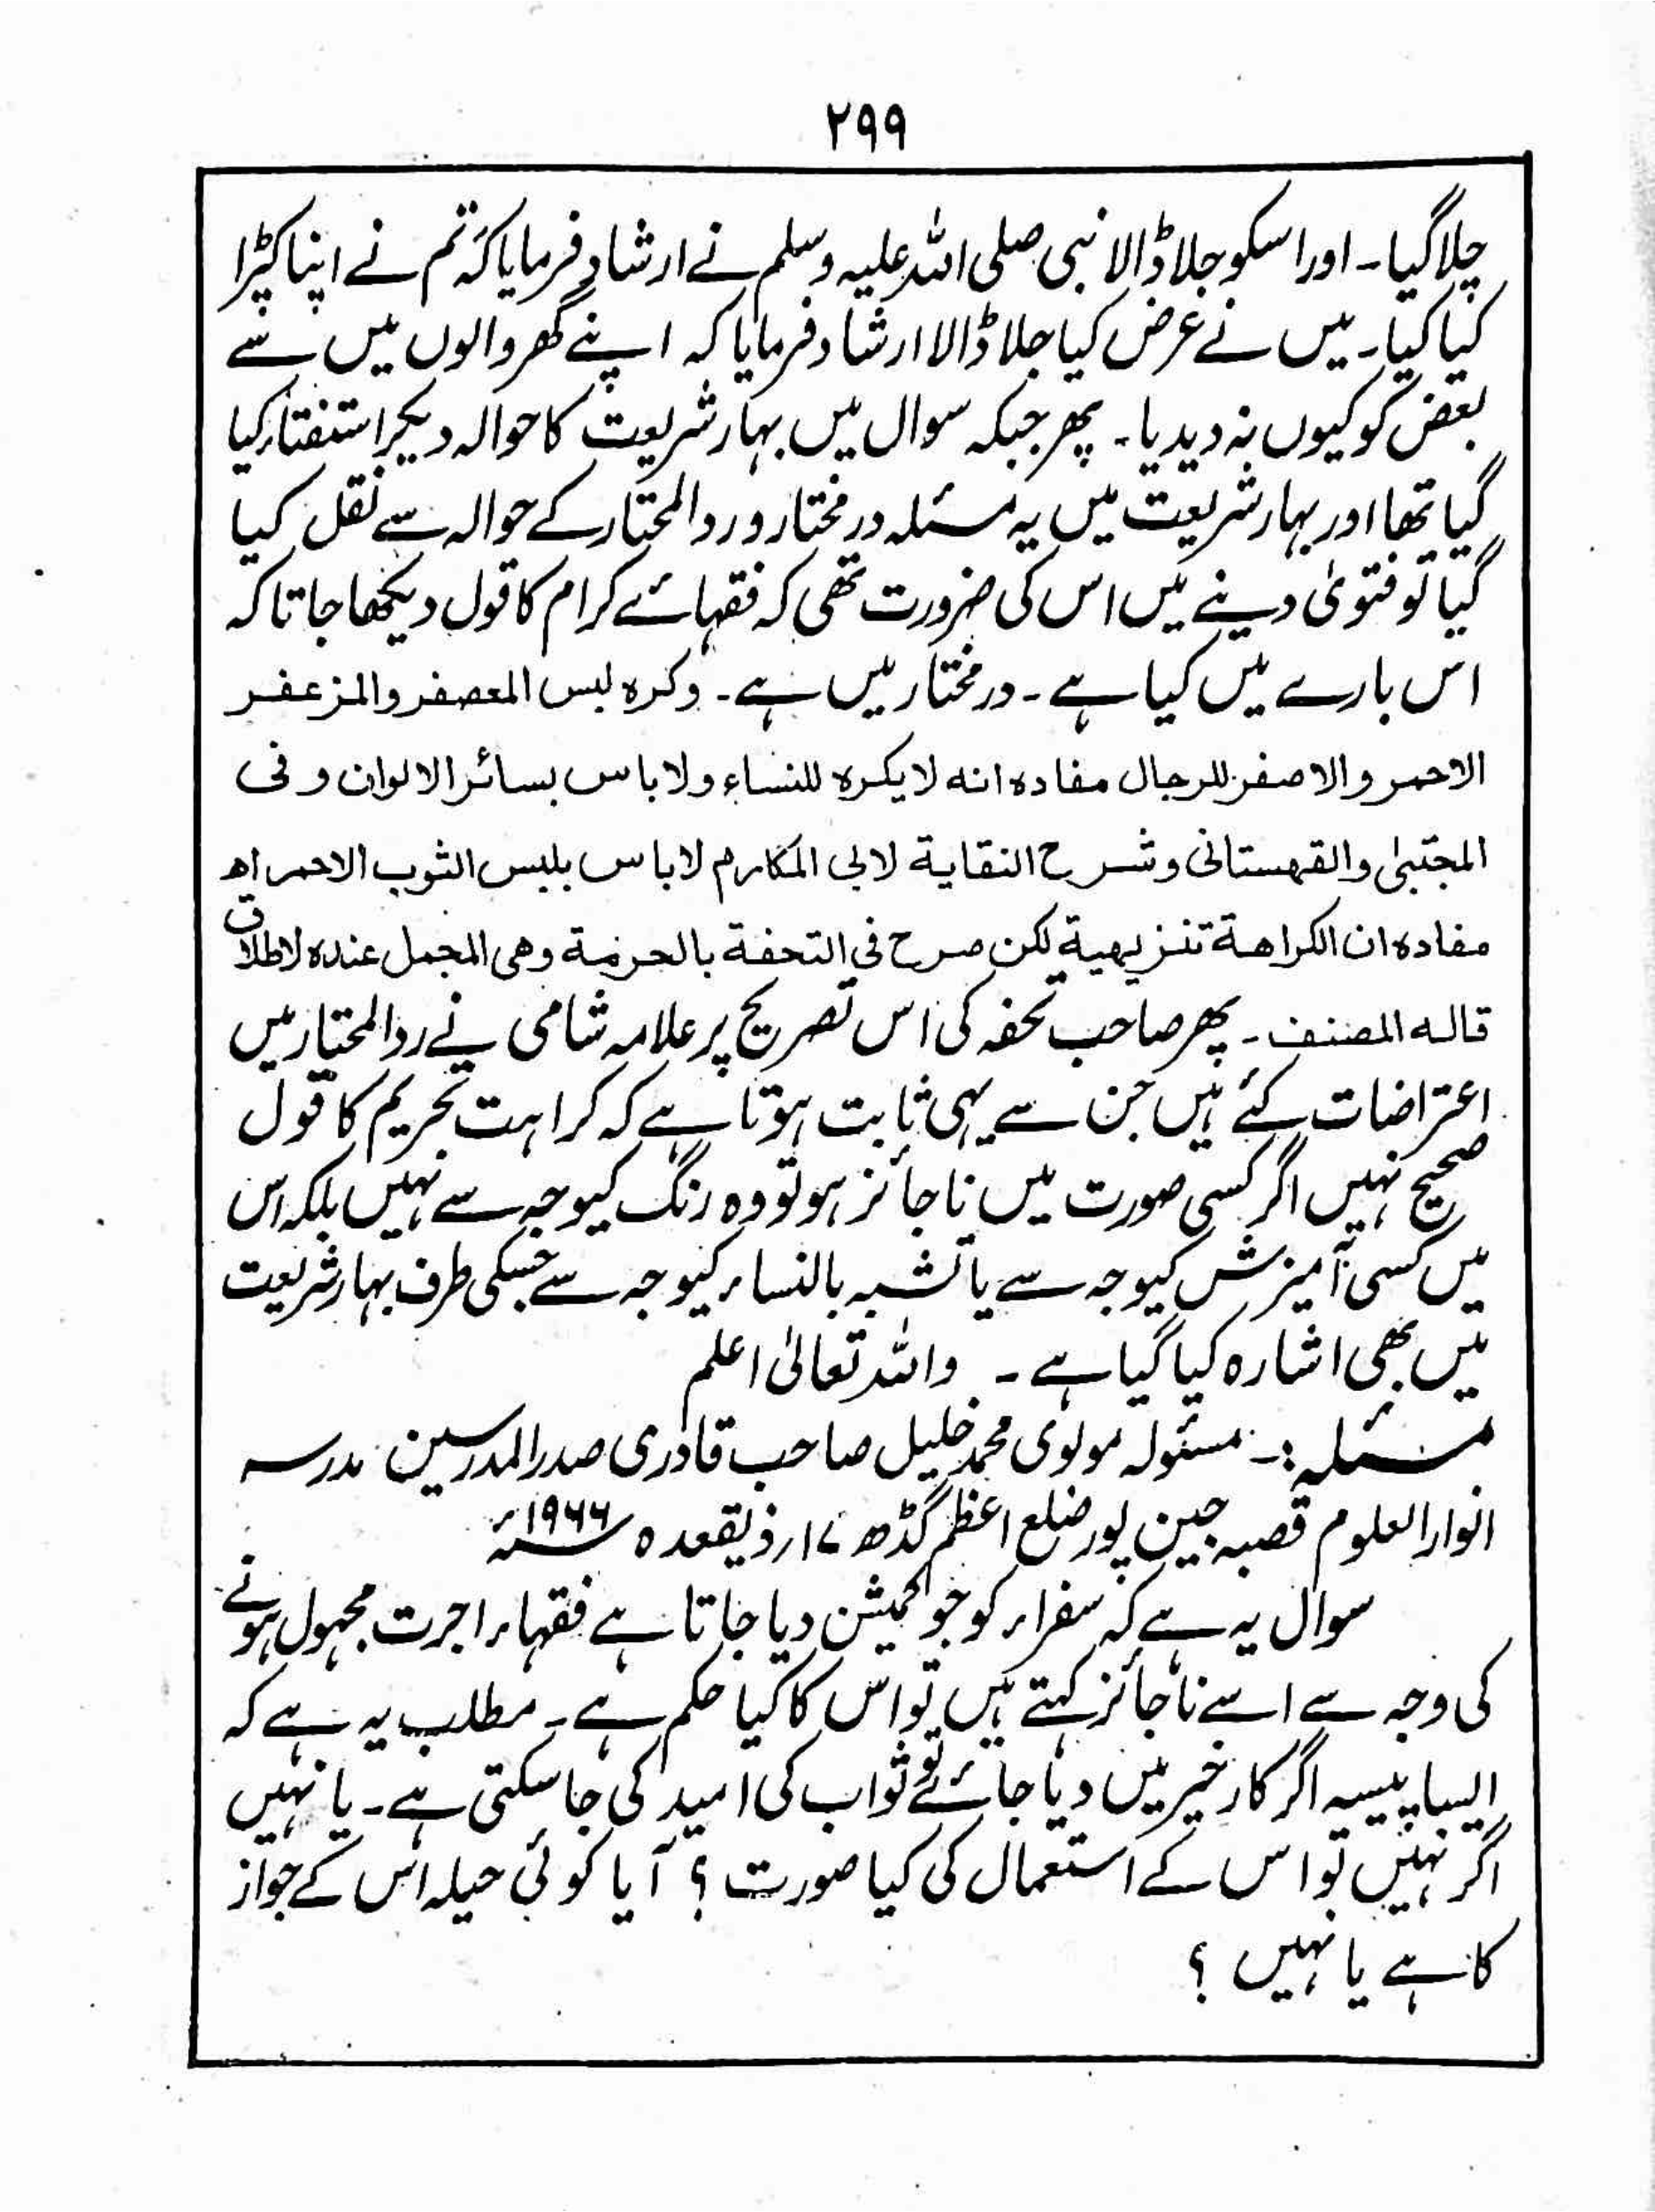 ۲۹۹
چلا گیا۔ اور اسکو جلا ڈالا نبی صلی اللہ علیہ وسلم نے ارشاد فرمایا کہ تم نے اپنا کپڑا
کیا کیا۔ میں نے عرض کیا جلا ڈالا ارشاد فرمایا کہ اپنے گھر والوں میں سے
بعض کو کیوں نہ دیدیا۔ پھر جبکہ سوال میں بہار شریعت کا حوالہ دیکر استفتاء کیا
گیا تھا اور بہار شریعت میں یہ مسئلہ درمختار و ردالمحتار کے حوالہ سے نقل کیا
گیا تو فتویٰ دینے میں اس کی ضرورت تھی کہ فقہائے کرام کا قول دیکھا جاتا کہ
اس بارے میں کیا ہے۔ درمختار میں ہے۔ وکرہ لبس المعصفر والمزعفر
الاحمر والاصفر للرجال مفادہ انہ لایکرہ للنساء ولاباس بسائر الالوان وفی
المجتبیٰ والقہستانی وشرح النقایة لابی المکارم لاباس بلبس الثوب الاحمر اھ
مفادہ ان الکراھة تنزیھیة لکن صرح فی التحفة بالحرمة وھی المجمل عندہ لاطلاق
قالہ المصنف۔ پھر صاحب تحفہ کی اس تصریح پر علامہ شامی نے ردالمحتار میں
اعتراضات کئے ہیں جن سے یہی ثابت ہوتا ہے کہ کراہت تحریم کا قول
صحیح نہیں اگر کسی صورت میں ناجائز ہو تو وہ رنگ کیوجہ سے نہیں بلکہ اس
میں کسی آمیزش کیوجہ سے یا تشبہ بالنساء کیوجہ سے جسکی طرف بہار شریعت
میں بھی اشارہ کیا گیا ہے۔ واللہ تعالیٰ اعلم
مسئلہ:۔ مسئولہ مولوی محمد خلیل صاحب قادری صدرالمدرسین مدرسہ
انوارالعلوم قصبہ جین پور ضلع اعظم گڈھ ۱۷؍ ذیقعدہ ۱۹۶۶ء
سوال یہ ہے کہ سفراء کو جو کمیشن دیا جاتا ہے فقہاء اجرت مجہول ہونے
کی وجہ سے اسے ناجائز کہتے ہیں تو اس کا کیا حکم ہے۔ مطلب یہ ہے کہ
ایسا پیسہ اگر کار خیر میں دیا جائے تو ثواب کی امید کی جا سکتی ہے۔ یا نہیں
اگر نہیں تو اس کے استعمال کی کیا صورت؟ آیا کوئی حیلہ اس کے جواز
کا ہے یا نہیں؟